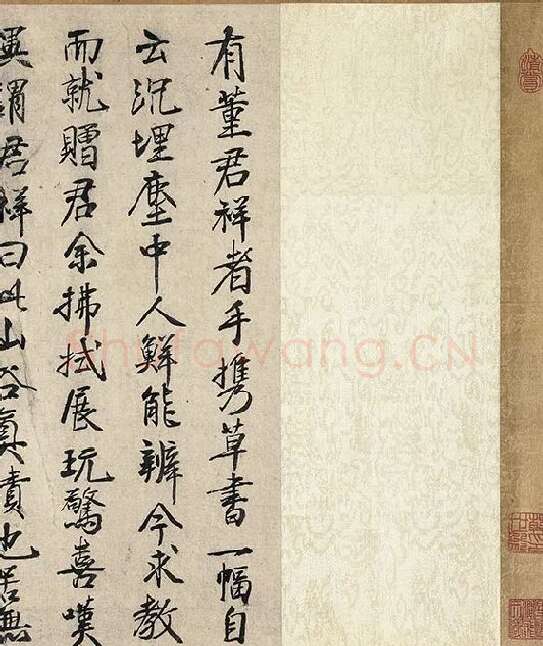 有董君祥者手携草書一幅自
云沉埋塵中人鮮能辨今求教
而就贈君余拂拭展玩驚喜嘆
異謂君祥曰此山谷真蹟也苦無
Shufawang.CN